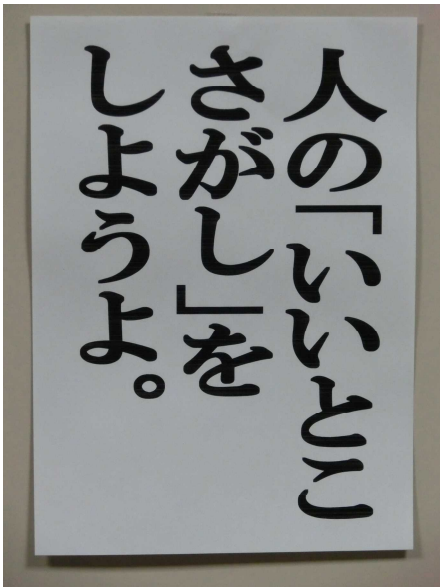 人の「いいとこ
さがし」を
しようよ。